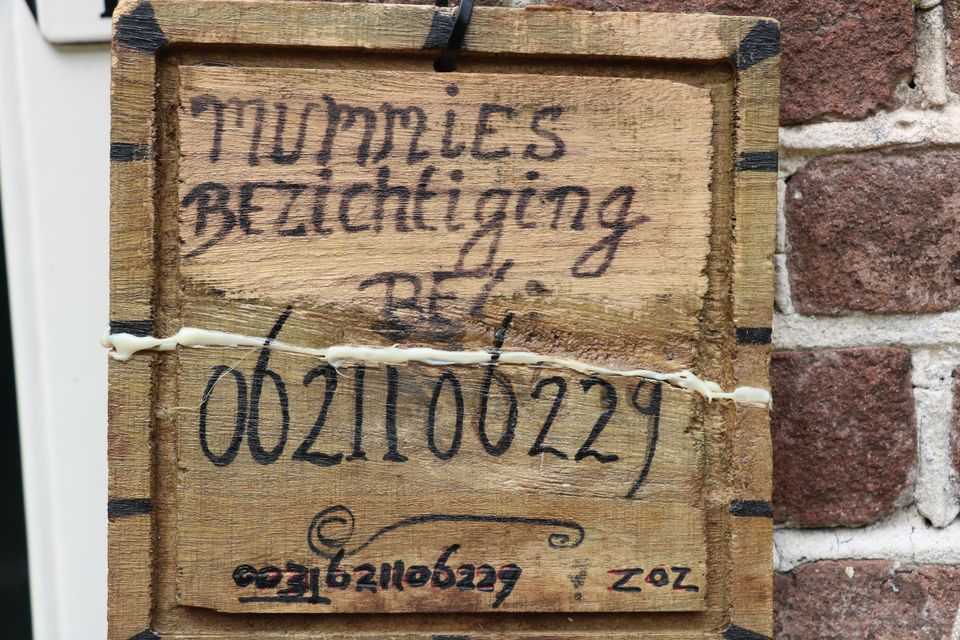 MUMMiES
BEZichtiging
BEL:
0621106229
0031621106229 : ZOZ